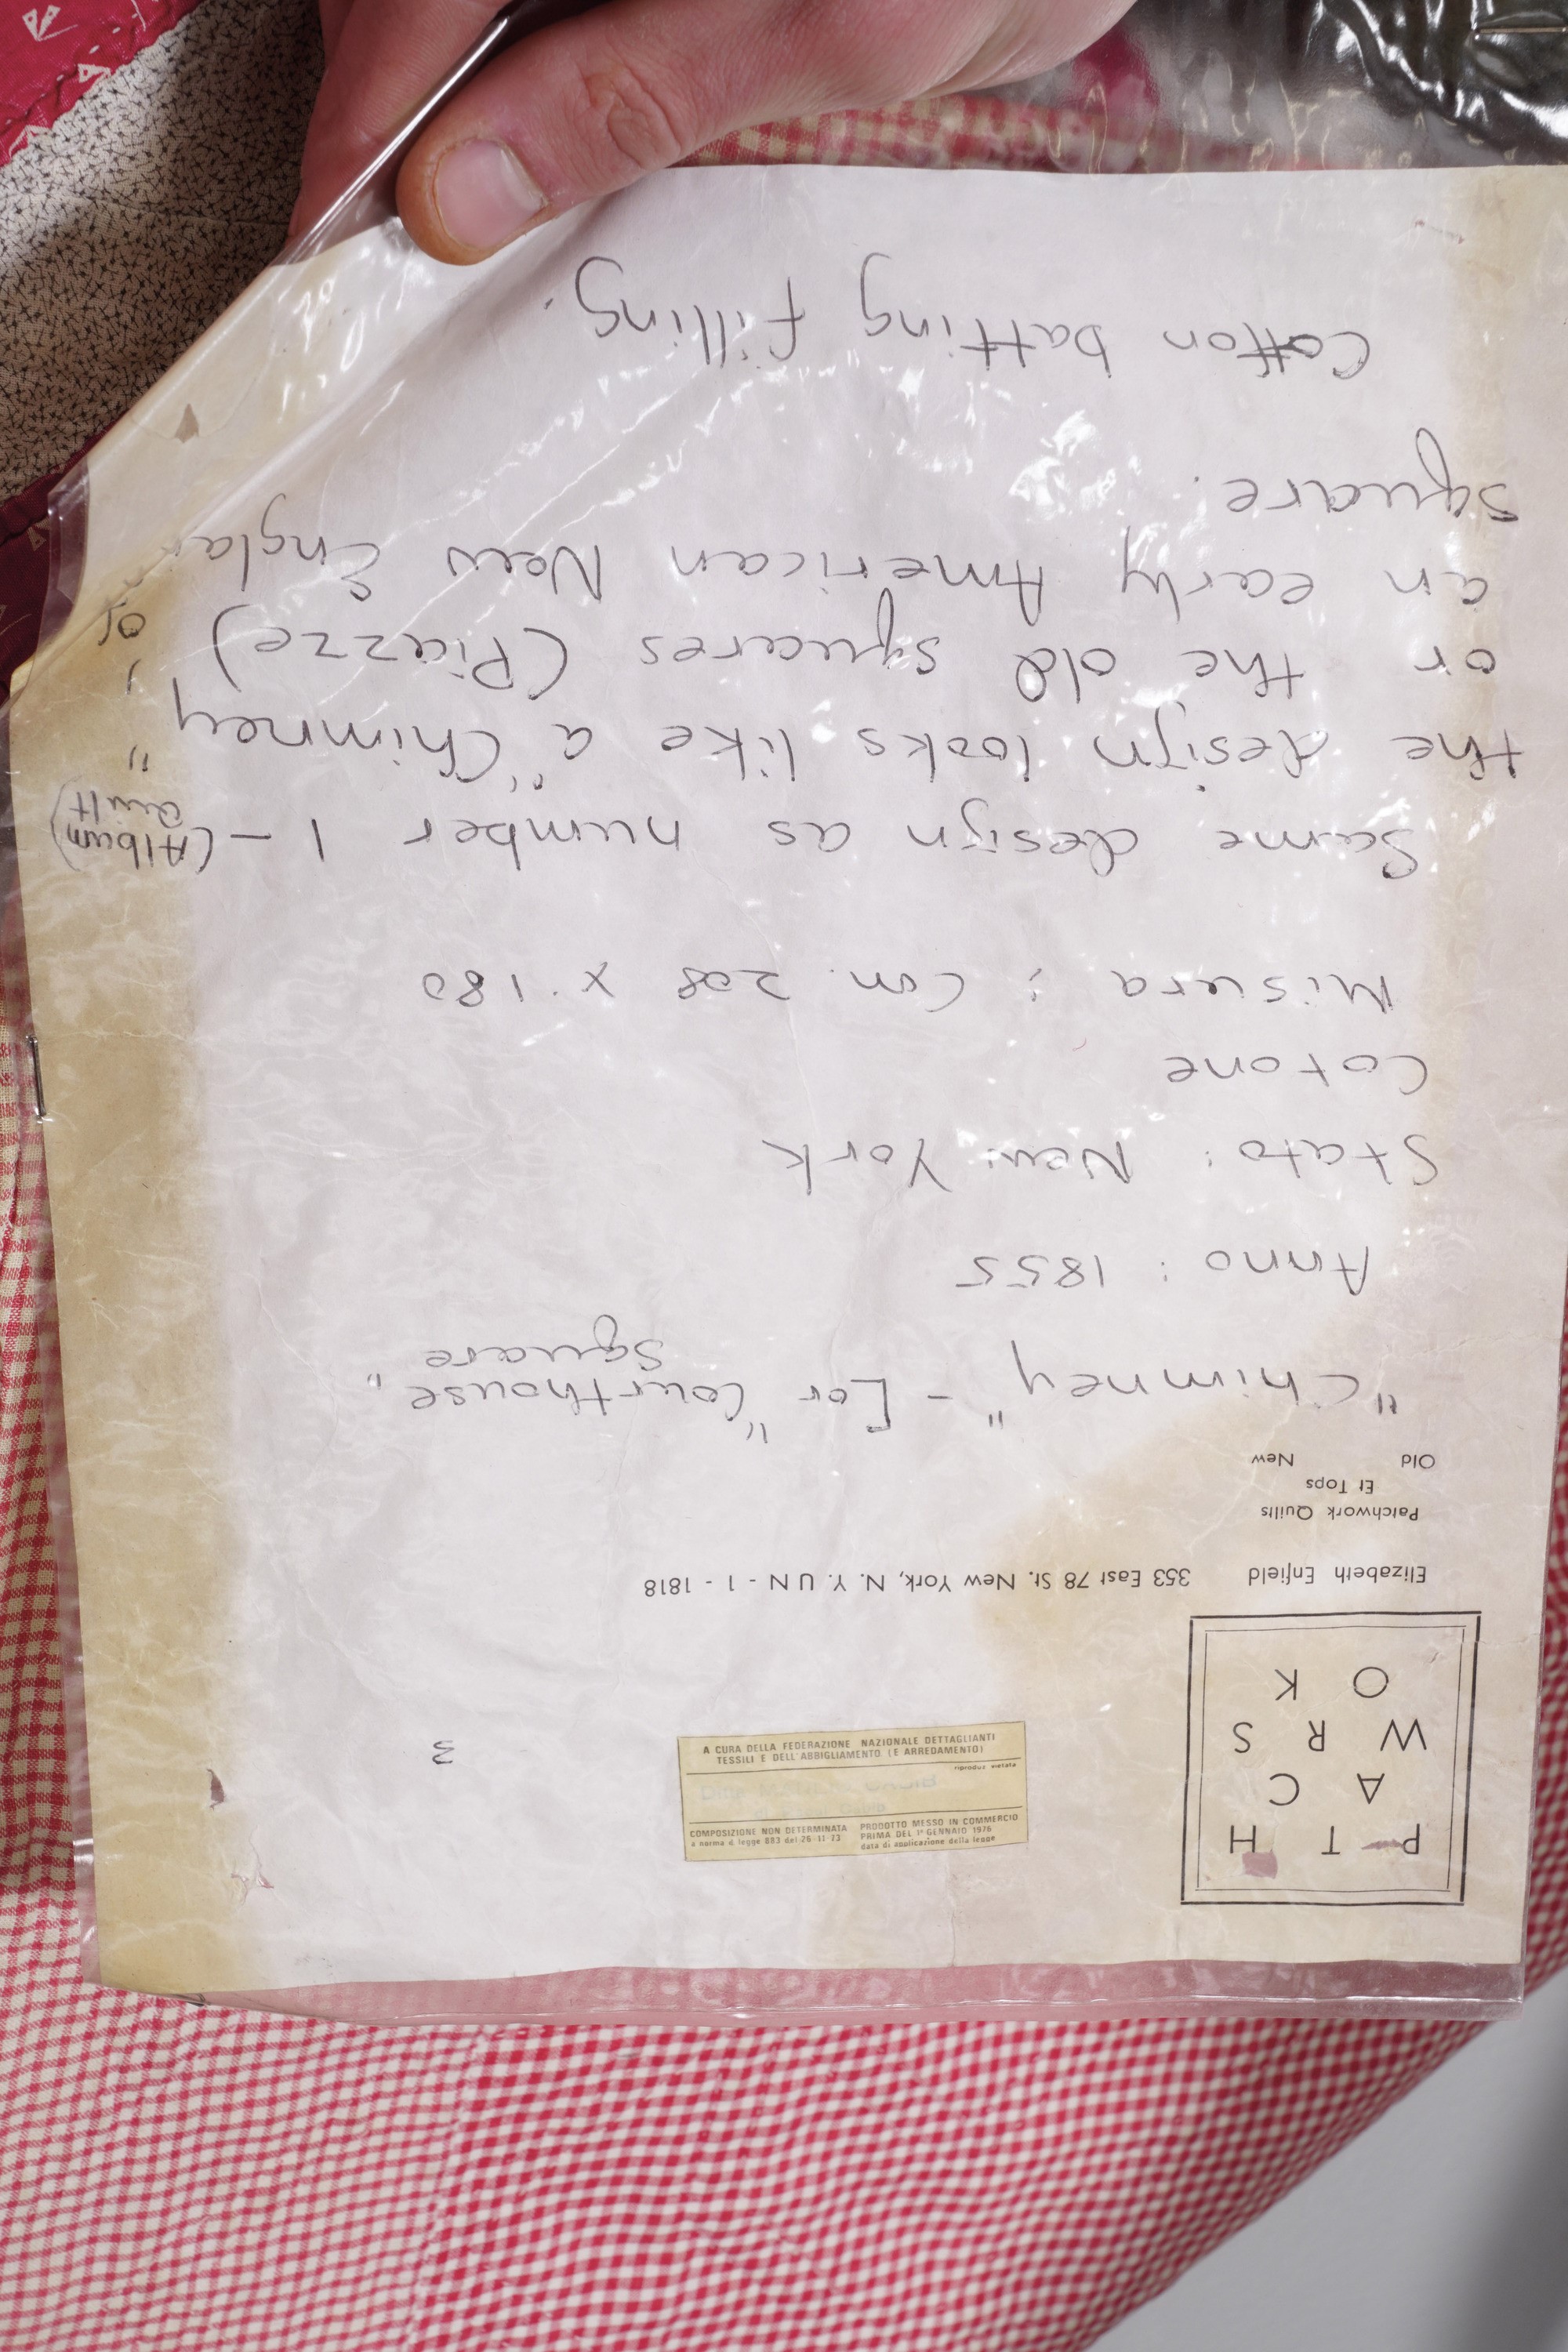 P T H
A C
W R S
O K
Elizabeth Enfield 353 East 78 St. New York, N. Y. UN - 1 - 1818
Patchwork Quilts
Et Tops
Old New
A CURA DELLA FEDERAZIONE NAZIONALE DETTAGLIANTI
TESSILI E DELL'ABBIGLIAMENTO (E ARREDAMENTO)
riproduz vietata
Ditta
COMPOSIZIONE NON DETERMINATA
a norma d legge 883 del 26-11-73
PRODOTTO MESSO IN COMMERCIO
PRIMA DEL 1° GENNAIO 1976
data di applicazione della legge
3
"Chimney" - [or "Courthouse
Square"
Anno : 1855
Stato : New York
Cotone
Misura : Cm. 208 x 180
Same design as number 1 - (Album
Quilt)
the design looks like a "Chimney", or
or the old squares (Piazze) of
an early American New Englan
Square.
Cotton batting filling.